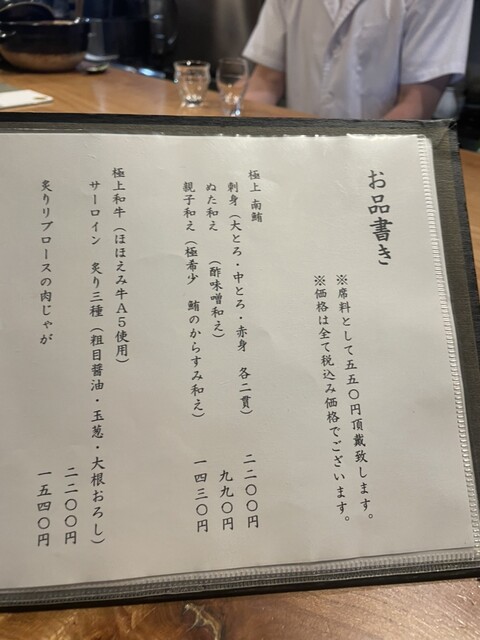 お品書き
※席料として五五〇円頂戴致します。
※価格は全て税込み価格でございます。
極上 南鮪
刺身（大とろ・中とろ・赤身 各二貫） 二二〇〇円
ぬた和え （酢味噌和え） 九九〇円
親子和え（極希少 鮪のからすみ和え） 一四三〇円
極上和牛（ほほえみ牛Ａ５使用）
サーロイン 炙り三種（粗目醤油・玉葱・大根おろし） 二二〇〇円
炙りリブロースの肉じゃが 一五四〇円